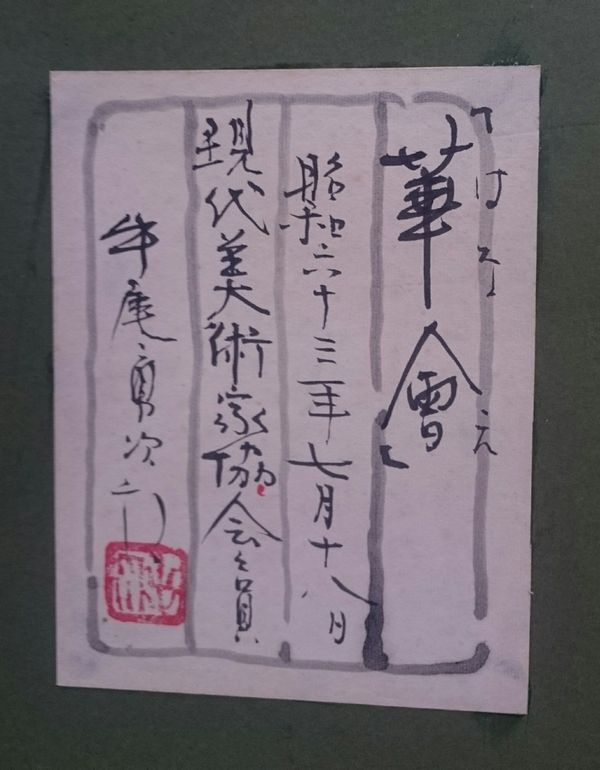 「華會」
はなえ
昭和六十三年七月十八日
現代美術家協会会員
牛尾勇次郎